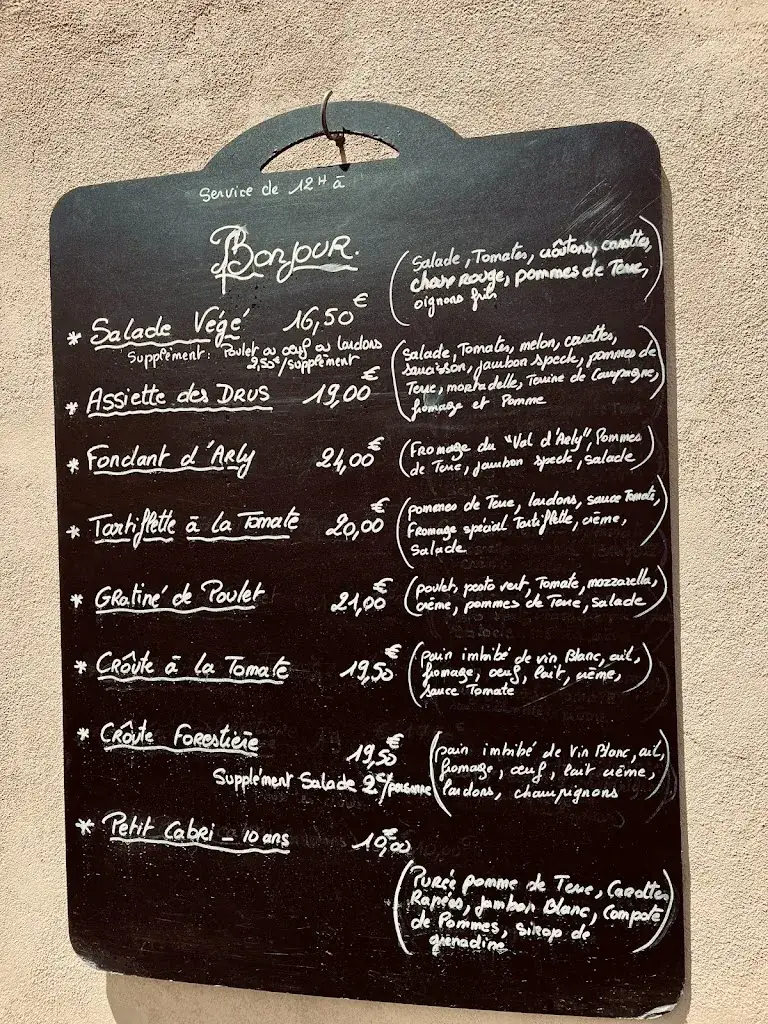 Service de 12H à
Bonjour.
* Salade Végé 16,50€
(Salade, Tomates, croûtons, carottes,
choux rouge, pommes de Terre,
oignons frits)
Supplément: Poulet ou oeuf ou lardons
2,50€/supplément
* Assiette des Drus 19,00€
(Salade, Tomates, melon, carottes,
saucisson, jambon speck, pommes de
Terre, mortadelle, Terrine de Campagne,
fromage et Pomme
* Fondant d'Arly 21,00€
(Fromage du "Val d'Arly", Pommes
de Terre, jambon speck, salade)
* Tartiflette à la Tomate 20,00€
(pommes de Terre, lardons, sauce Tomate,
Fromage spécial Tartiflette, crème,
Salade)
* Gratiné de Poulet 21,00€
(poulet, pesto vert, Tomate, mozzarella,
crème, pommes de Terre, salade)
* Croûte à la Tomate 19,50€
(pain imbibé de vin Blanc, ail,
fromage, oeuf, lait, crème,
sauce Tomate)
* Croûte Forestière 19,50€
(pain imbibé de Vin Blanc, ail,
fromage, oeuf, lait crème,
lardons, champignons)
Supplément Salade 2€/personne
* Petit Cabri - 10 ans 10,00€
(Purée pomme de Terre, Carottes
Rapées, jambon Blanc, Compote
de Pommes, sirop de
grenadine)